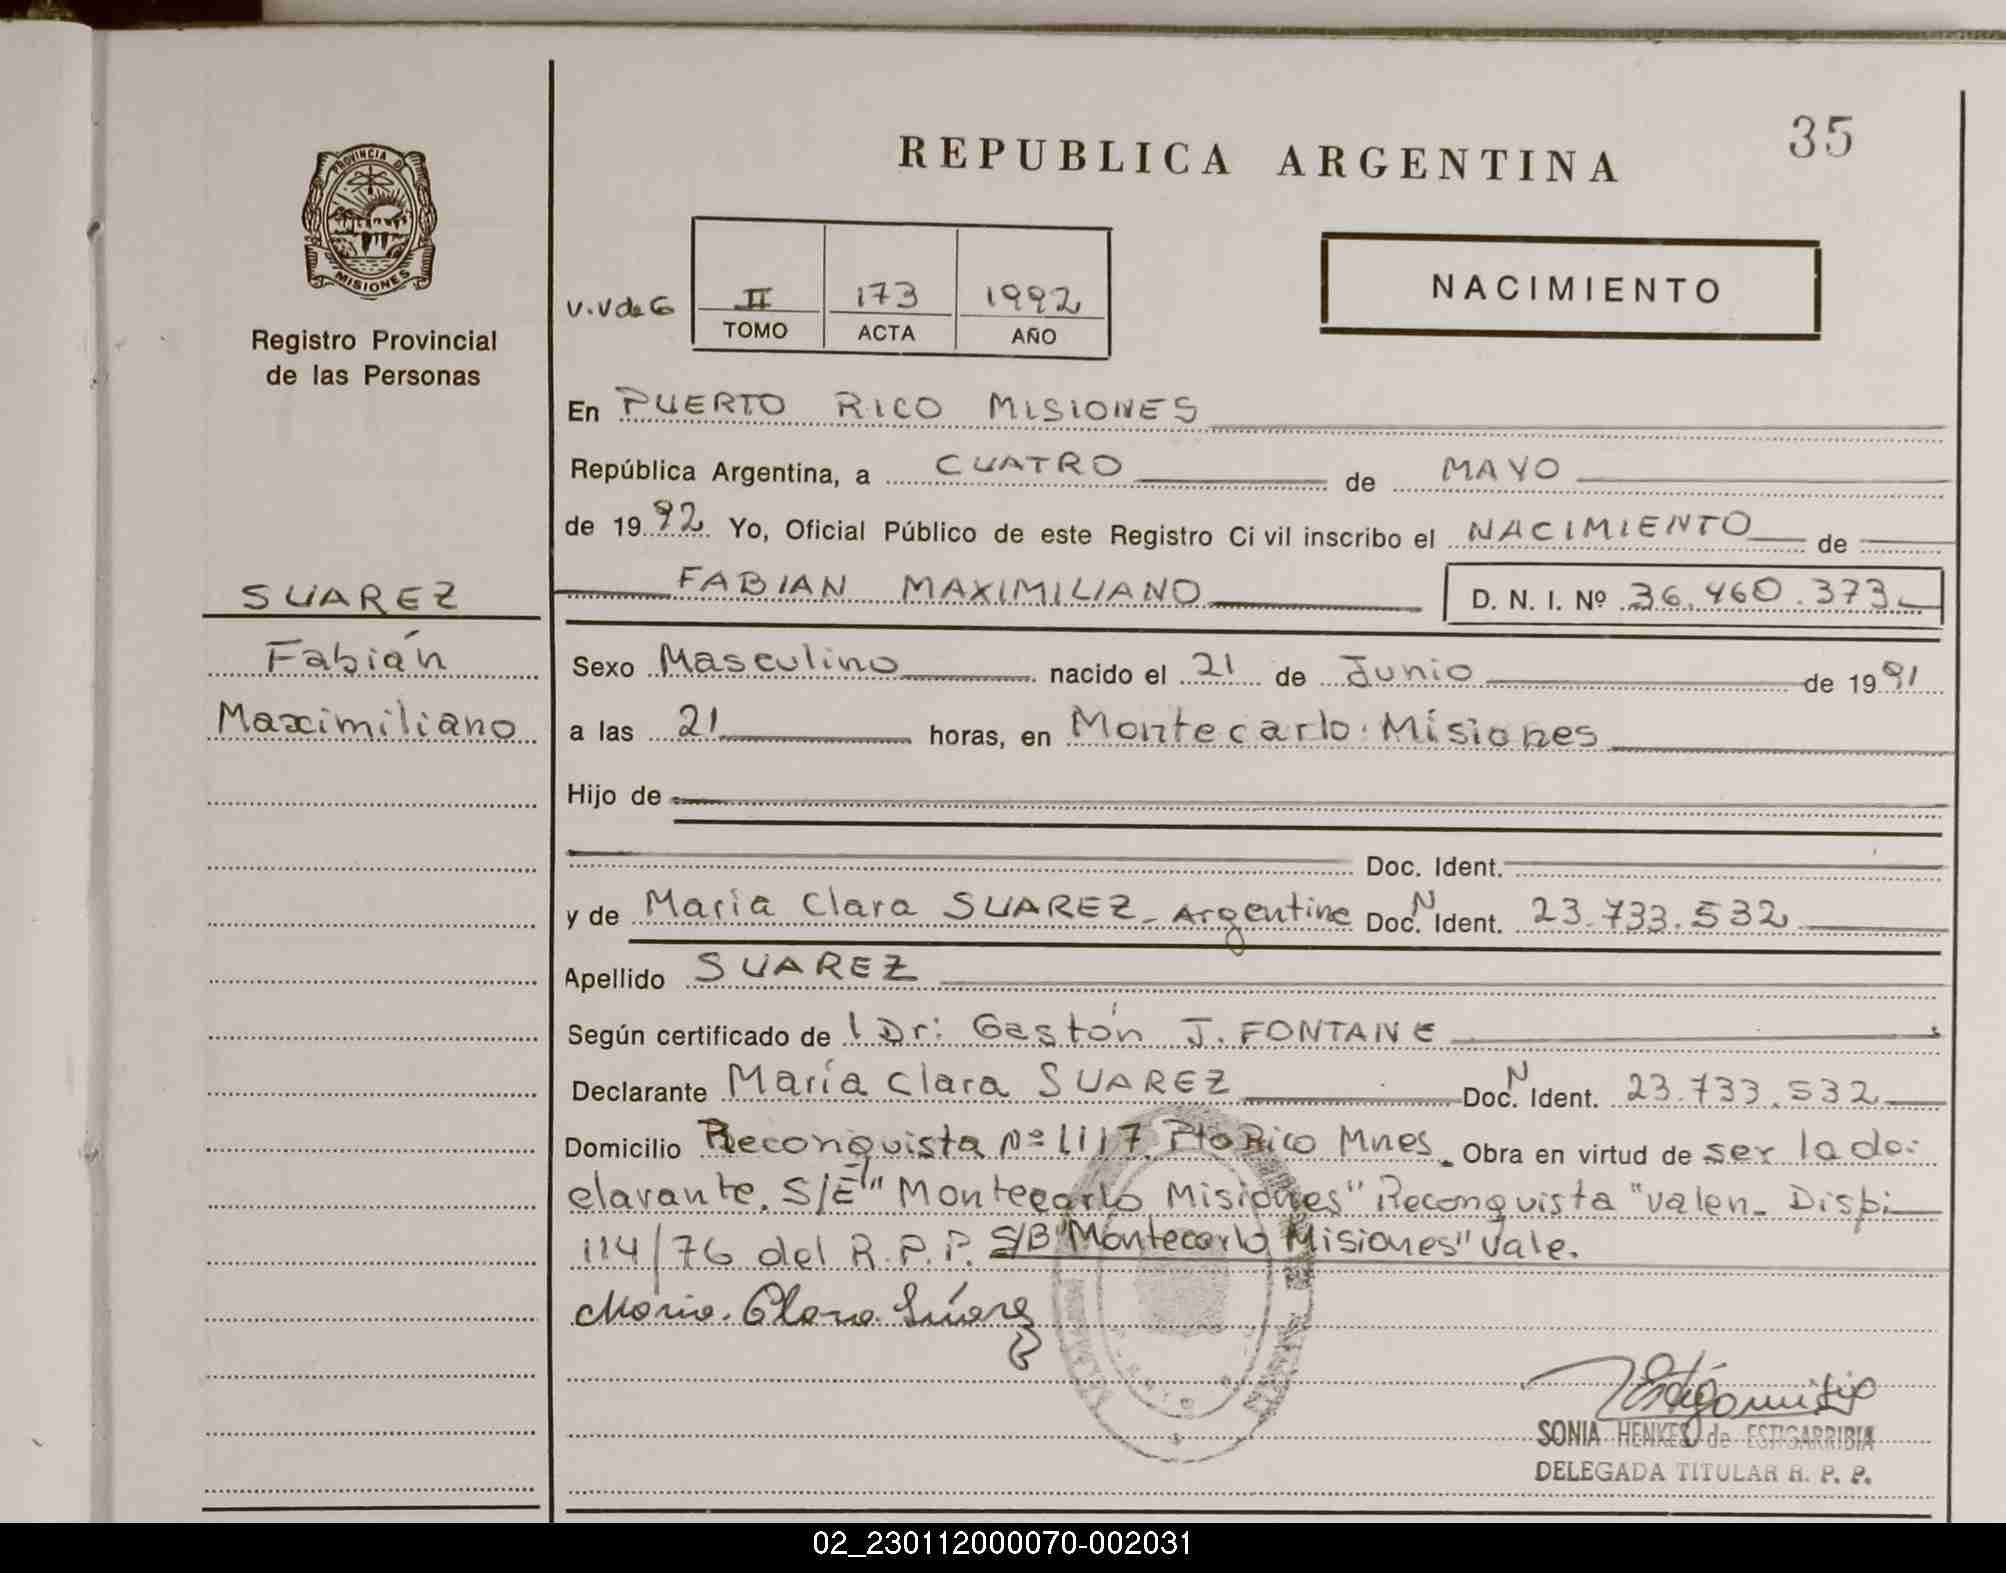 REPUBLICA ARGENTINA
35
PROVINCIA D
MISIONES
Registro Provincial
de las Personas
NACIMIENTO
V.V de G
II 173 1992
TOMO ACTA AÑO
En PUERTO RICO MISIONES
República Argentina, a CUATRO de MAYO
de 1992 Yo, Oficial Público de este Registro Civil inscribo el NACIMIENTO de
FABIAN MAXIMILIANO D. N. I. Nº 36.460.373
SUAREZ
Fabián
Maximiliano
Sexo Masculino nacido el 21 de Junio de 1991
a las 21 horas, en Montecarlo. Misiones
Hijo de
Doc. Ident.
y de Maria Clara SUAREZ - Argentina Doc. N Ident. 23.733.532
Apellido SUAREZ
Según certificado de l Dr: Gastón J. FONTANE
Declarante María Clara SUAREZ Doc. N Ident. 23.733.532
Domicilio Reconquista Nº 1117 Pto Rico Mnes. Obra en virtud de ser la de-
clarante. S/E "Montecarlo Misiones" Reconquista "valen- Dispi
114/76 del R.P.P. S/B "Montecarlo Misiones" Vale.
Maria Clara Suárez
SONIA HENKES de ESTIGARRIBIA
DELEGADA TITULAR R. P. P.
02_230112000070-002031